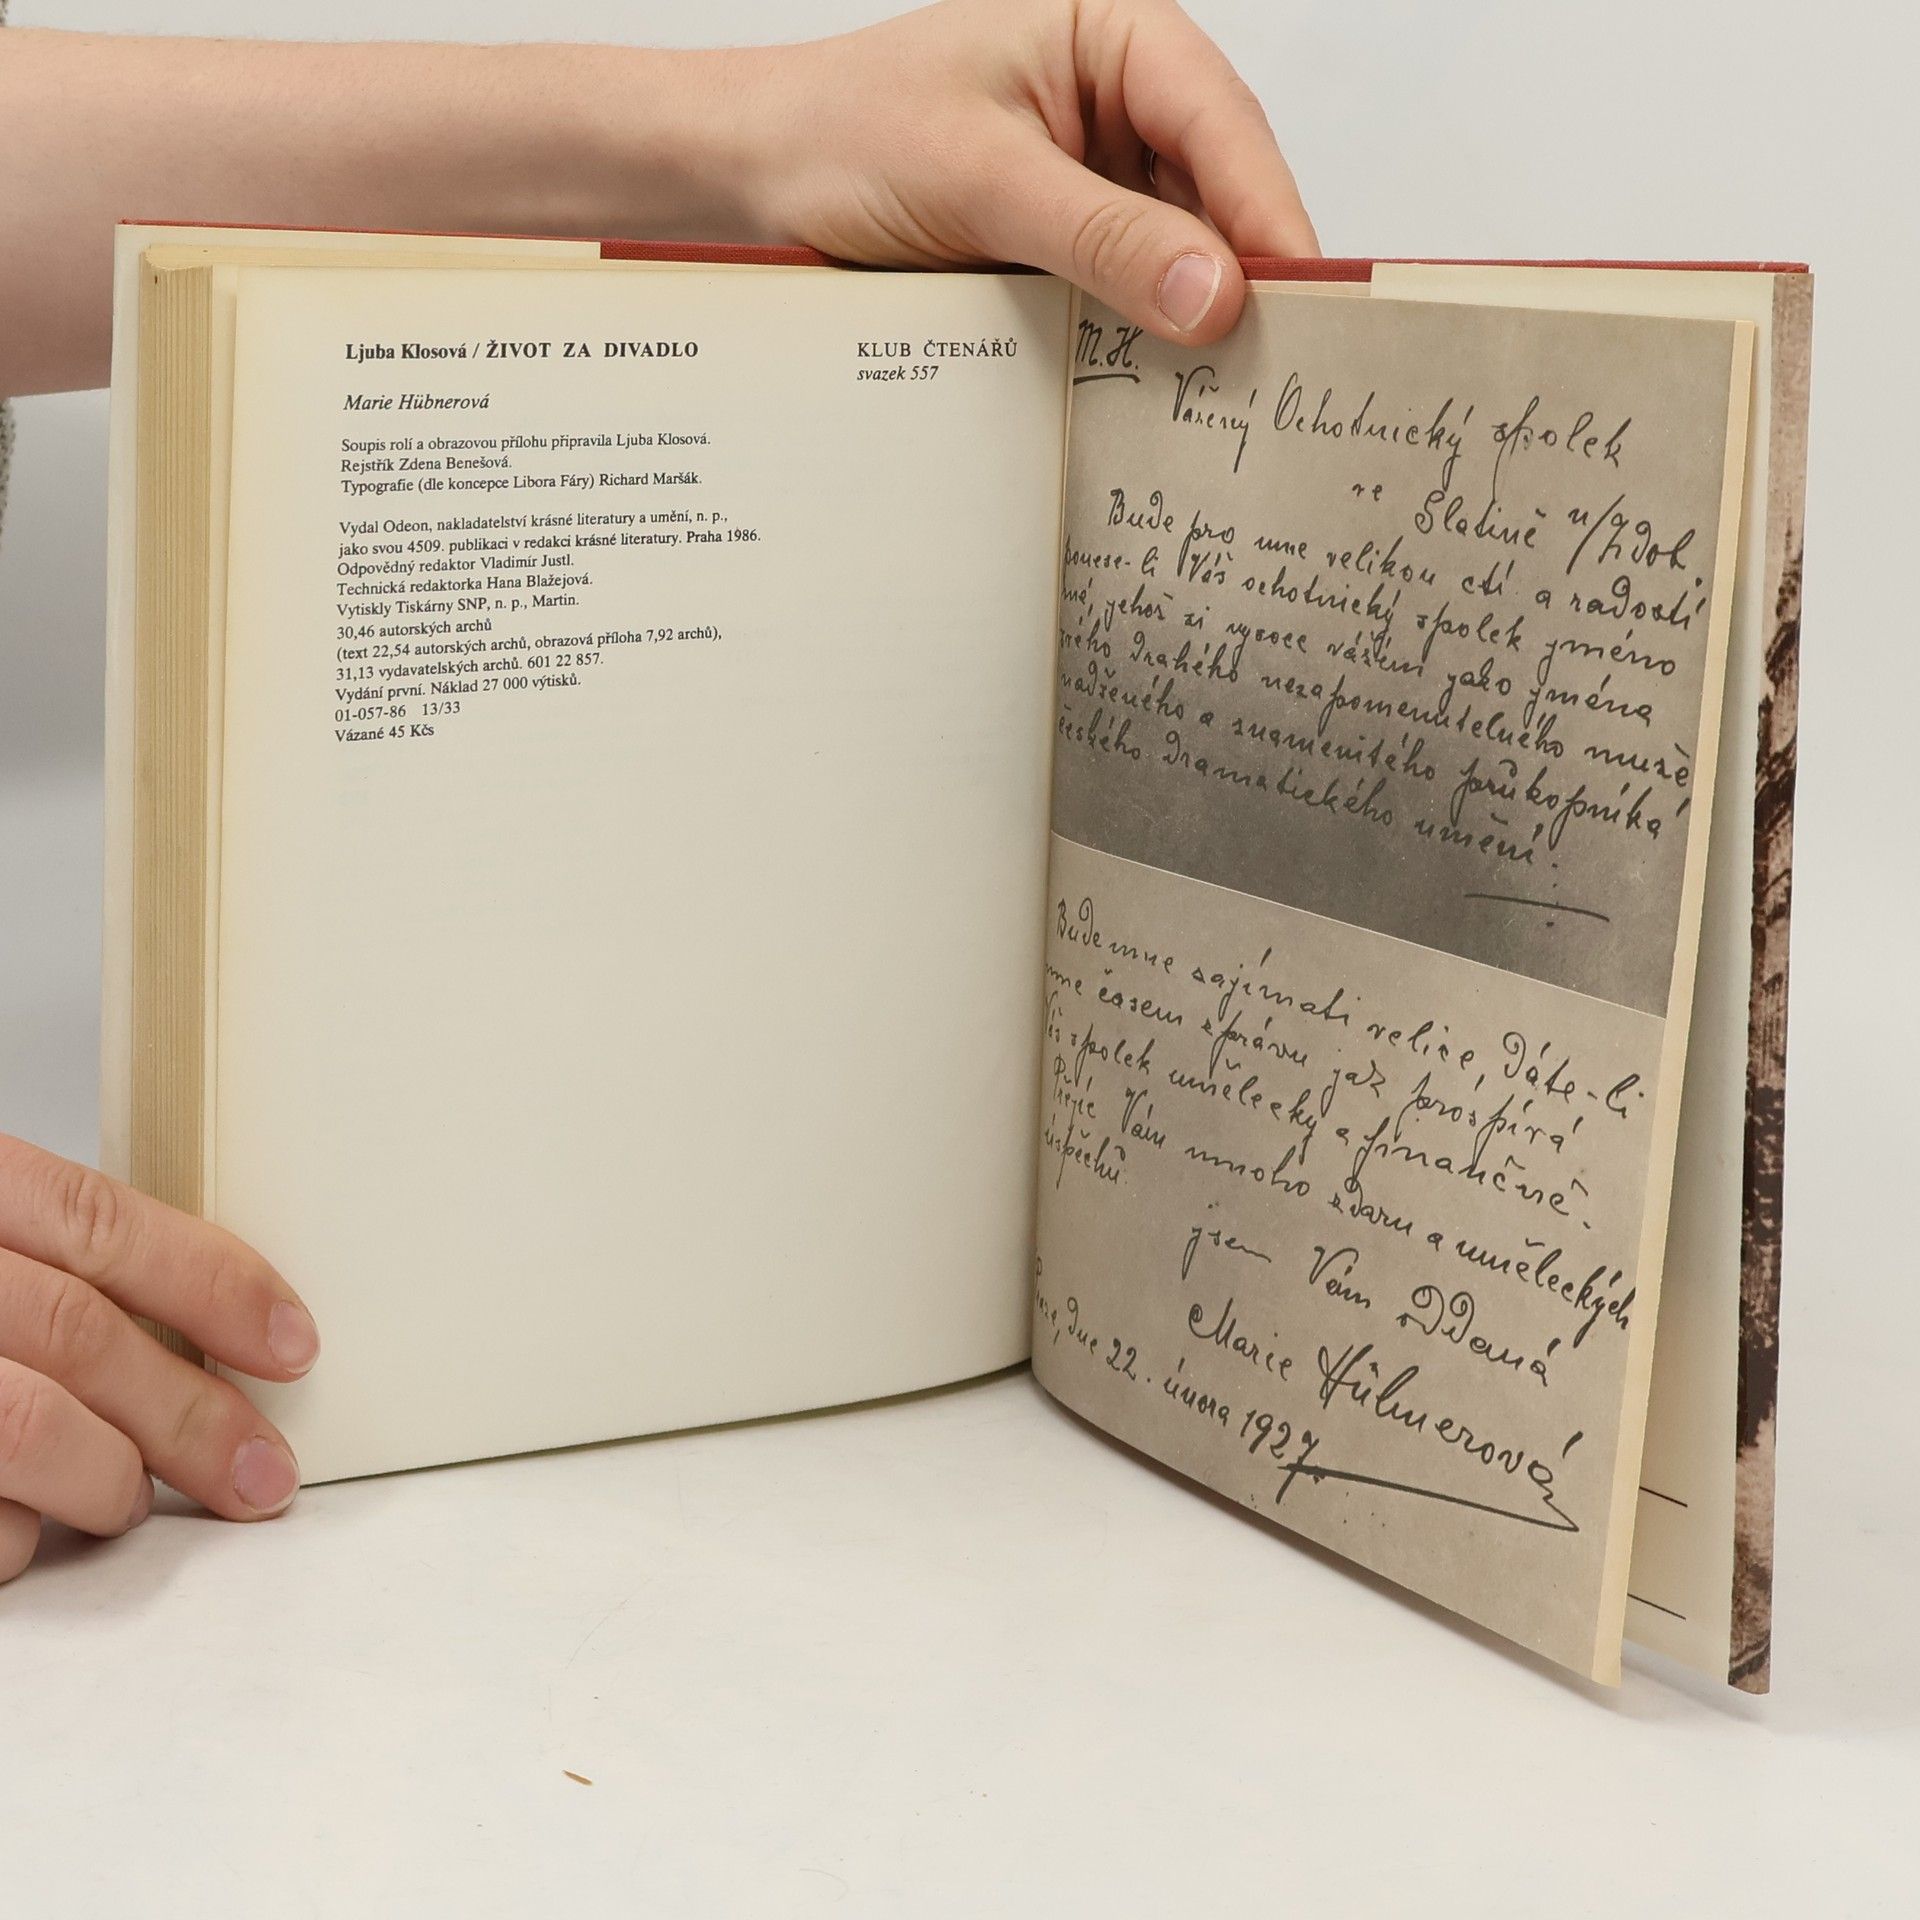 Ljuba Klosová / ŽIVOT ZA DIVADLO
Marie Hübnerová
Soupis rolí a obrazovou přílohu připravila Ljuba Klosová.
Rejstřík Zdena Benešová.
Typografie (dle koncepce Libora Fáry) Richard Maršák.
Vydal Odeon, nakladatelství krásné literatury a umění, n. p.,
jako svou 4509. publikaci v redakci krásné literatury. Praha 1986.
Odpovědný redaktor Vladimír Justl.
Technická redaktorka Hana Blažejová.
Vytiskly Tiskárny SNP, n. p., Martin.
30,46 autorských archů
(text 22,54 autorských archů, obrazová příloha 7,92 archů),
31,13 vydavatelských archů. 601 22 857.
Vydání první. Náklad 27 000 výtisků.
01-057-86 13/33
Vázané 45 Kčs
KLUB ČTENÁŘŮ
svazek 557
M. H.
Vážený Ochotnický spolek
ve Slatině n/Zdob.
Bude pro mne velikou ctí a radostí
ponese-li Váš ochotnický spolek jméno
má, jehož si vysoce vážím jako jména
svého drahého nezapomenutelného muže
nadšeného a znamenitého průkopníka
českého dramatického umění.
Bude mne zajímati velice, dáte-li
mne časem zprávu jak prospívá
Váš spolek umělecky a finančně.
Přeje Vám mnoho zdaru a uměleckých
úspěchů.
jsem Vám oddaná
Marie Hübnerová
Praze, dne 22. února 1927.